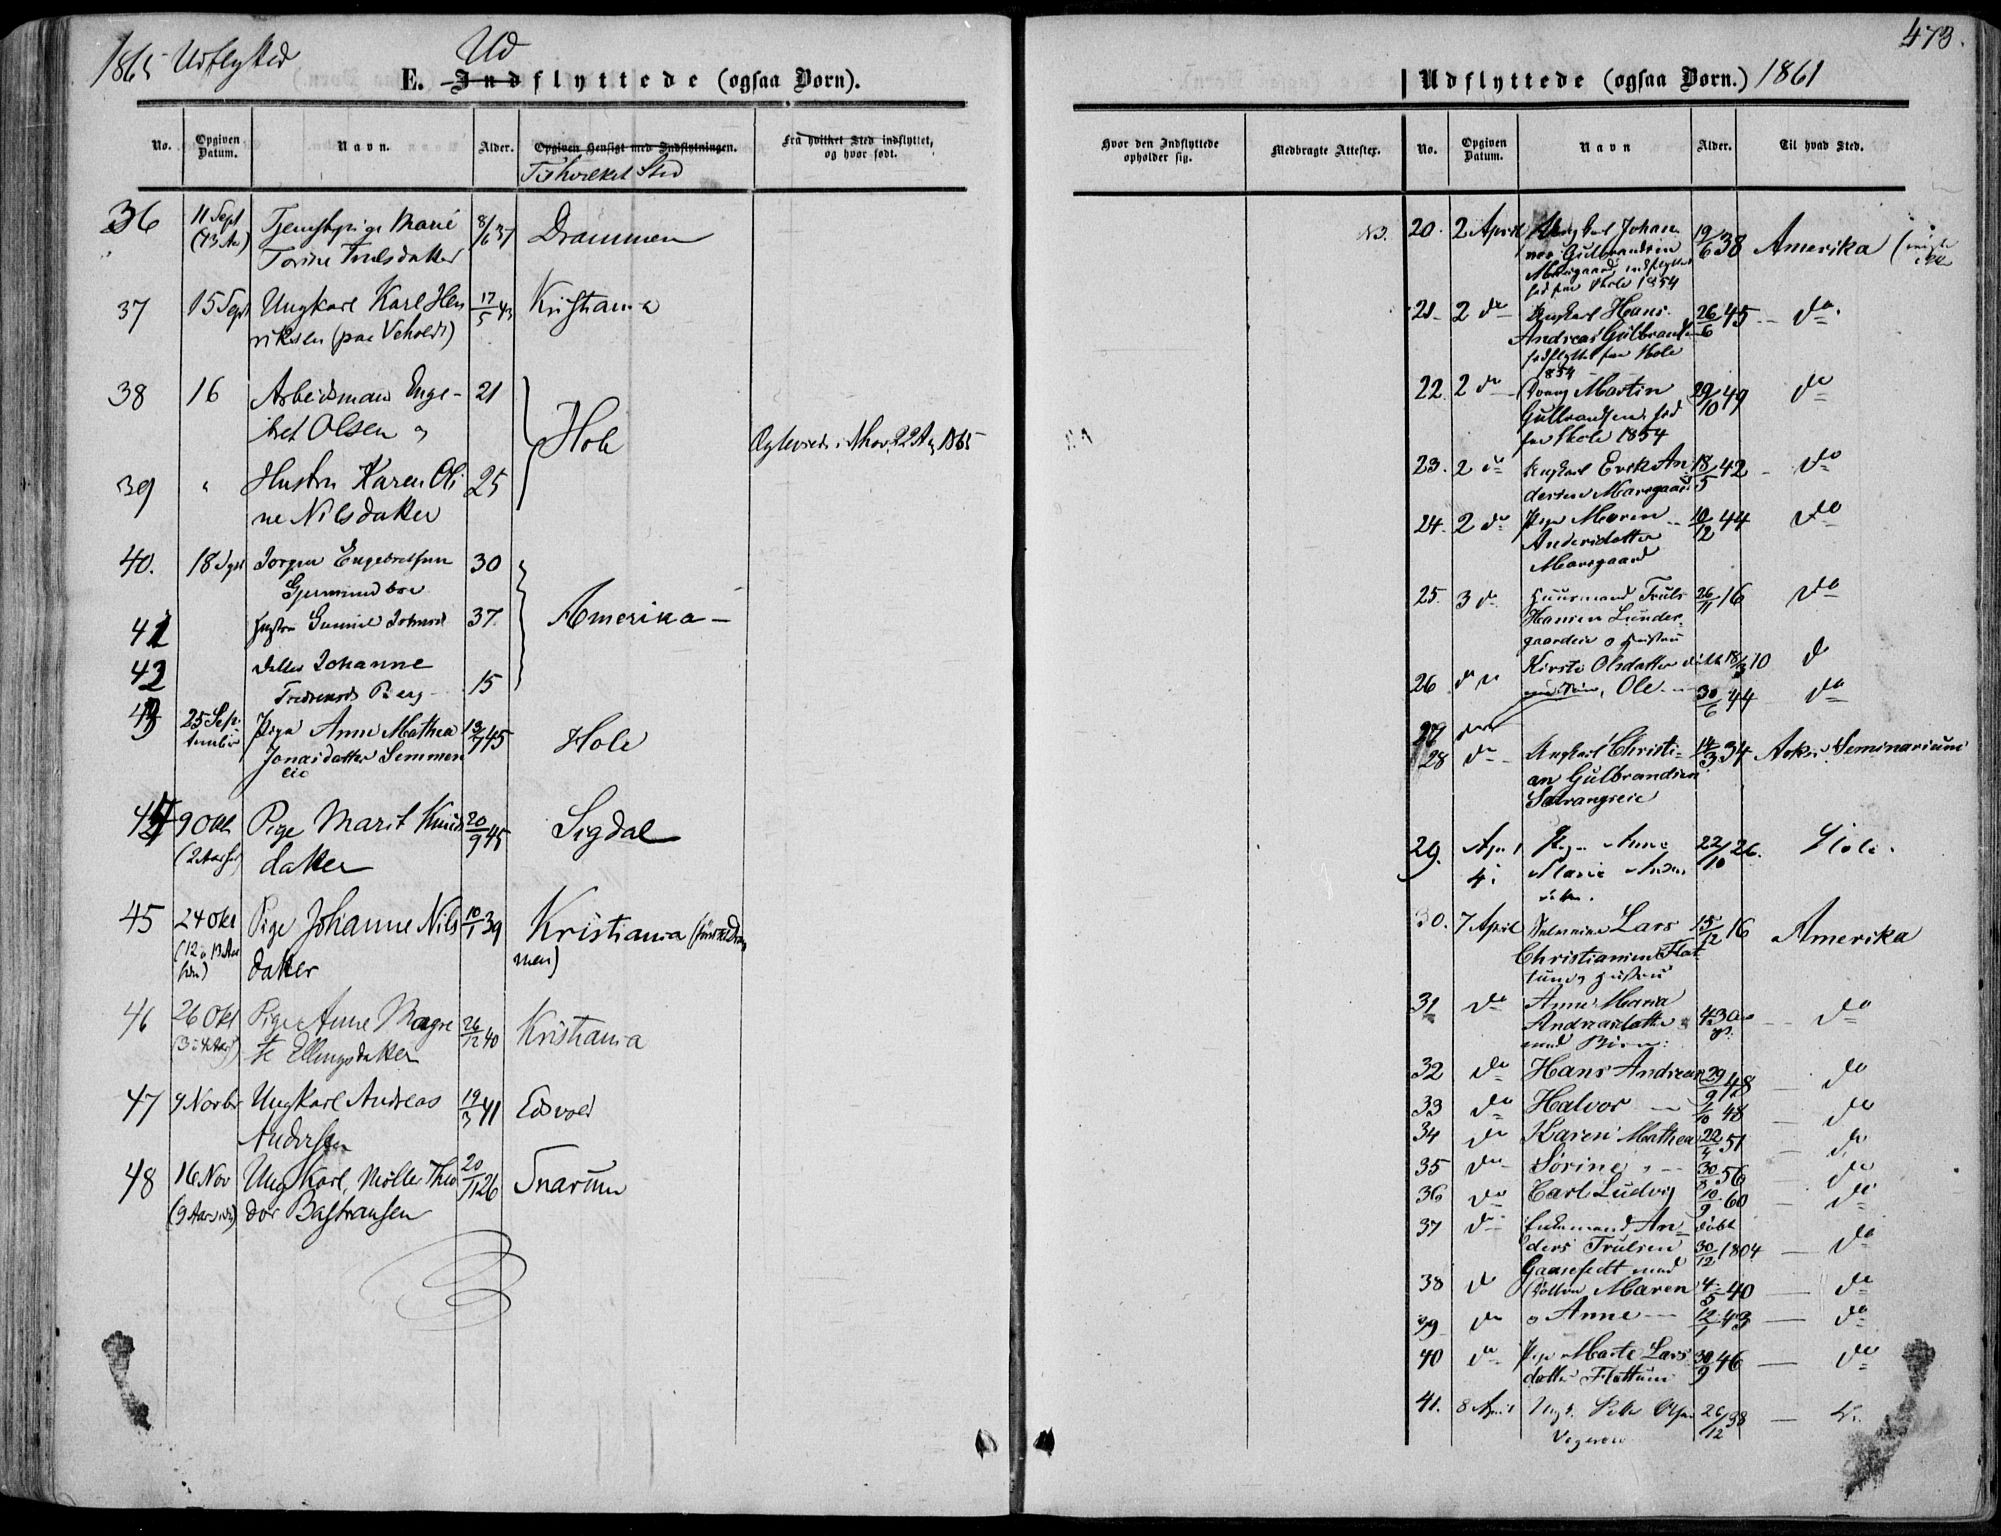 1865 Udflyttede
Ud
E. Indflyttede (ogsaa Børn).
No. Opgiven Datum. Navn. Alder. Opgiven Hensigt med Indflytningen. Fra hvilket Sted indflyttet, og hvor født.
Til hvilket Sted
36 11 Sept Tjenestepige Marie 8/6 37 Drammen
Torine Trulsdatter
37 15 Sept Ungkarl Karl Hen 17/5 43 Kristiania
riksen (paa Veholdt)
38 16 Arbeidsmand Enge- 21
bret Olsen og
Hole 22 Aug 1865
39 " Hustru Karen Oli 25
ne Nilsdatter
40. 18 Sept Jørgen Engebretsen 30
Gjermundboe
41 Hustru Gunnil 37 Amerika
42 datter Johanne
Berg 15
43 25 Sep- Pige Anne Mathea 13/7 45 Hole
tember Jonasdatter Semmen
eie
44 9 Okt Pige Marit Knuds 20/9 45 Sigdal
(2 Aar her) datter
45 24 Okt Pige Johanne Nils 10/1 39 Kristiania
(12 a 13 Aar datter men)
46 26 Okt Pige Anne Magre 26/12 40 Kristiania
te Ellingsdatter
47 9 Novbr Ungkarl Andreas 19/3 41 Eidsvold
Andersen
48 16 Nov Ungkarl, Møller Theo 20/11 26 Snarum
dor Bastiansen
473.
Udflyttede (ogsaa Børn.) 1861
Hvor den Indflyttede opholder sig. Medbragte Attester. No. Opgiven Datum. Navn Alder. Til hvad Sted.
20. 2 April Ungkarl Johan- 19/6 38 Amerika
nes Gulbrandsen
Moesgaard, indflyttet
fra Hole 1854
21. 2 do Ungkarl Hans 26/6 45 do
Andreas Gulbrandsen
indflyttet fra Hole
1854
22. 2 do Dreng Martin 29/10 49 do
Gulbrandsen, ind
fra Hole 1854
23. 2 do Ungkarl Erik An 18/5 42 do
dersen Moesgaard
24. 2 do Pige Maren 10/12 44 do
Andersdatter
Moesgaard
25. 3 do Huusmand Truls 26/11 16 do
Hansen Lunder-
gaardeie og Hustru
26 do Kirsti Olsdatter døbt 18/3 10 do
27 do Ole 30/6 44 do
28 do Ungkarl Christi- 14/3 34 Asker Seminarium
an Gulbrandsen
29. April Pige Anne 22/10 26. Hole.
4. Marie Anders
datter.
30. 7 April Lars 15/12 16 Amerika
Christiansen Flat
tum og Hustru
31 do Anne Maria
Andreasdatter do
med Børn:
32 do Hans Andreas 29/9 48 do
33 do Halvor 48 do
34 do Karen Mathea 22/4 51 do
35 do Sørine 56 do
36 do Carl Ludvig 10/9 60 do
37 do Enkemand An- døbt
ders Trulsen 30/12 1804 do
Gaasefedt med
38 do Døttre Maren 4/5 40 do
39 do o Anne 12/1 43 do
40 do Pige Marte Lars 30/9 46 do
datter Flattum
41. 8 April Ungk. Olsen 26/12 38 do